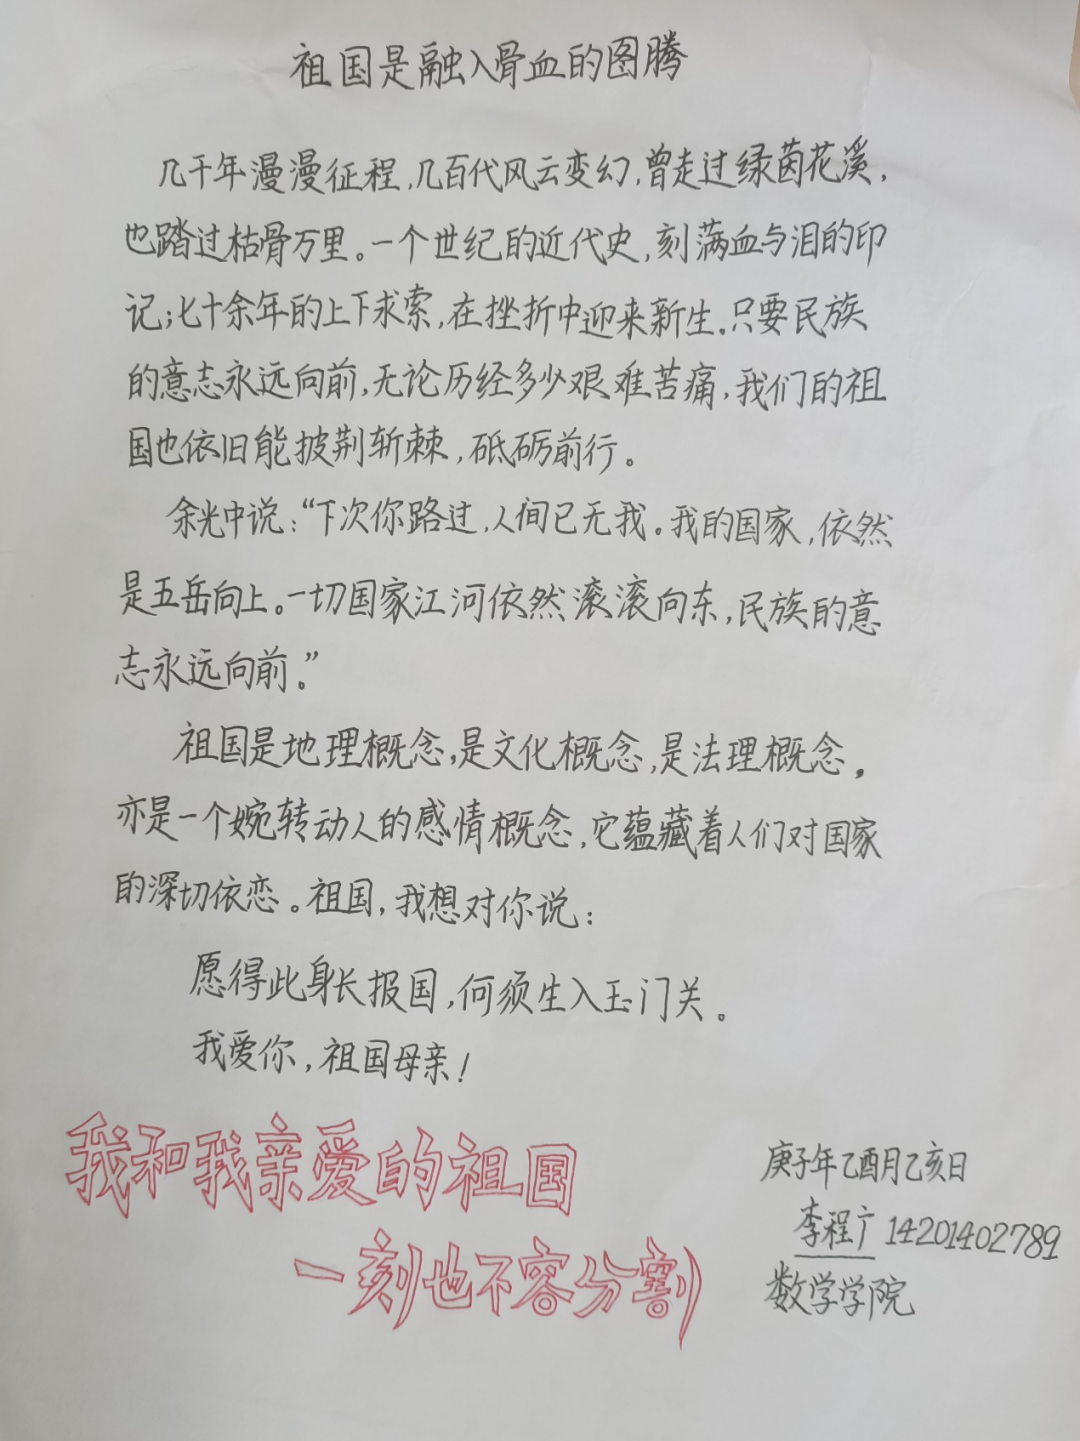 祖国是融入骨血的图腾
几千年漫漫征程,几百代风云变幻,曾走过绿茵花溪,
也踏过枯骨万里。一个世纪的近代史,刻满血与泪的印
记;七十余年的上下求索,在挫折中迎来新生。只要民族
的意志永远向前,无论历经多少艰难苦痛,我们的祖
国也依旧能披荆斩棘,砥砺前行。
余光中说:“下次你路过,人间已无我。我的国家,依然
是五岳向上。一切国家江河依然滚滚向东,民族的意
志永远向前。”
祖国是地理概念,是文化概念,是法理概念,
亦是一个婉转动人的感情概念,它蕴藏着人们对国家
的深切依恋。祖国,我想对你说:
愿得此身长报国,何须生入玉门关。
我爱你,祖国母亲!
我和我亲爱的祖国
一刻也不容分割
庚子年乙酉月乙亥日
李程广 14201402789
数学学院